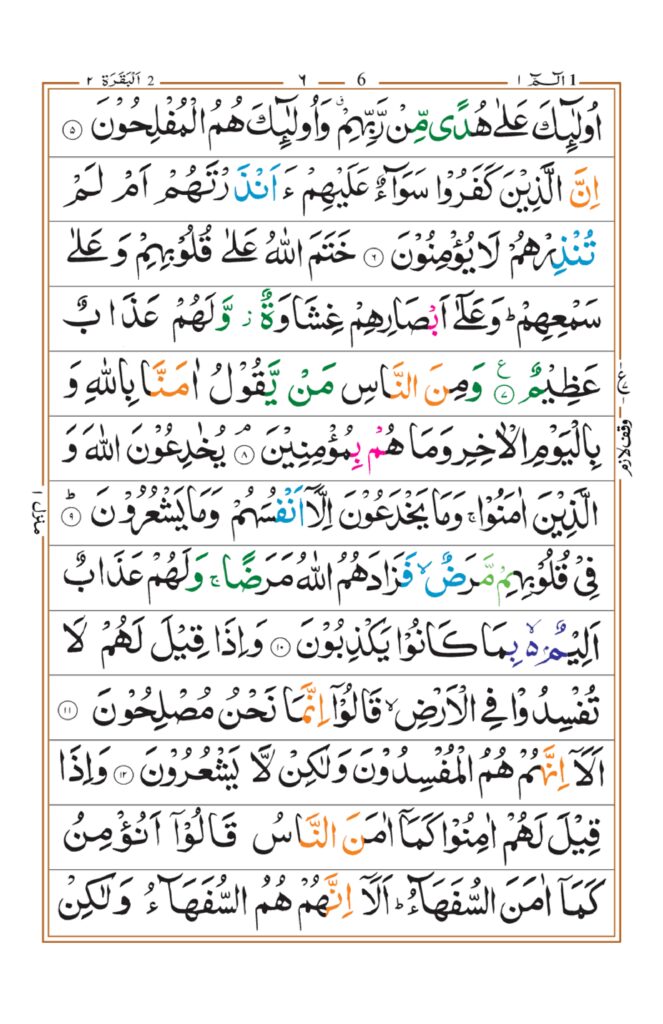 الٓمّٓ ١ 1 ٦ 6 اَلْبَقَرَة ٢ 2
اُولٰٓئِكَ عَلٰى هُدًى مِّنْ رَّبِّهِمْ ۙ وَاُولٰٓئِكَ هُمُ الْمُفْلِحُوْنَ ۝۵
اِنَّ الَّذِيْنَ كَفَرُوْا سَوَآءٌ عَلَيْهِمْ ءَاَنْذَرْتَهُمْ اَمْ لَمْ
تُنْذِرْهُمْ لَا يُؤْمِنُوْنَ ۝۶ خَتَمَ اللّٰهُ عَلٰى قُلُوْبِهِمْ وَ عَلٰى
سَمْعِهِمْ ؕ وَعَلٰٓى اَبْصَارِهِمْ غِشَاوَةٌ ز وَّلَهُمْ عَذَابٌ
عَظِيْمٌ ۝۷ ع وَمِنَ النَّاسِ مَنْ يَّقُوْلُ اٰمَنَّا بِاللّٰهِ وَ
بِالْيَوْمِ الْاٰخِرِ وَمَا هُمْ بِمُؤْمِنِيْنَ ۝۸ ۘ يُخٰدِعُوْنَ اللّٰهَ وَ
الَّذِيْنَ اٰمَنُوْا ۚ وَمَا يَخْدَعُوْنَ اِلَّاۤ اَنْفُسَهُمْ وَمَا يَشْعُرُوْنَ ۝۹ ؕ
فِىْ قُلُوْبِهِمْ مَّرَضٌ ۙ فَزَادَهُمُ اللّٰهُ مَرَضًا ۚ وَلَهُمْ عَذَابٌ
اَلِيْمٌۢ ۙ بِمَا كَانُوْا يَكْذِبُوْنَ ۝۱۰ وَاِذَا قِيْلَ لَهُمْ لَا
تُفْسِدُوْا فِى الْاَرْضِ ۙ قَالُوْٓا اِنَّمَا نَحْنُ مُصْلِحُوْنَ ۝۱۱
اَلَاۤ اِنَّهُمْ هُمُ الْمُفْسِدُوْنَ وَلٰكِنْ لَّا يَشْعُرُوْنَ ۝۱۲ وَاِذَا
قِيْلَ لَهُمْ اٰمِنُوْا كَمَاۤ اٰمَنَ النَّاسُ قَالُوْٓا اَنُؤْمِنُ
كَمَاۤ اٰمَنَ السُّفَهَآءُ ؕ اَلَاۤ اِنَّهُمْ هُمُ السُّفَهَآءُ وَلٰكِنْ
وقف لازم
منزل ١